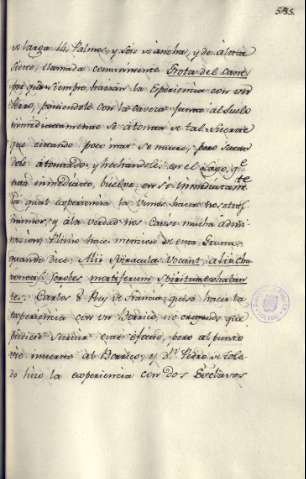 585.
de larga 14 Palmos, y seis de ancha, y de altura
cinco, llamada comunmente Grota del Cane
por que siempre hazian la Esperiencia con un
Perro, poniendole con la caveza junto al suelo
inmediatamente se atonta de tal suerte
que estando poco mas se muere, pero sacan
dole atontado, y hechandole en el Lago, q.e
esta inmediato, buelve en si inmediatam.te
la qual experiencia la vimos hacer nosotros
mismos, y a la verdad nos causo mucha admi
racion; Plinio hace mencion de esta Gruta,
quando dice Alii Spiracula vocant, alii Cha
roneas Scrobes mortiferum Spiritum exhalan
tes. Carlos 8 Rey de Francia, quiso hacer la
experiencia con un Borrico, no creyendo que
pudiera surtir este efecto, pero al punto
vio muerto al Borrico, y D.n Pedro de Tole
do hizo la experiencia con dos Esclavos